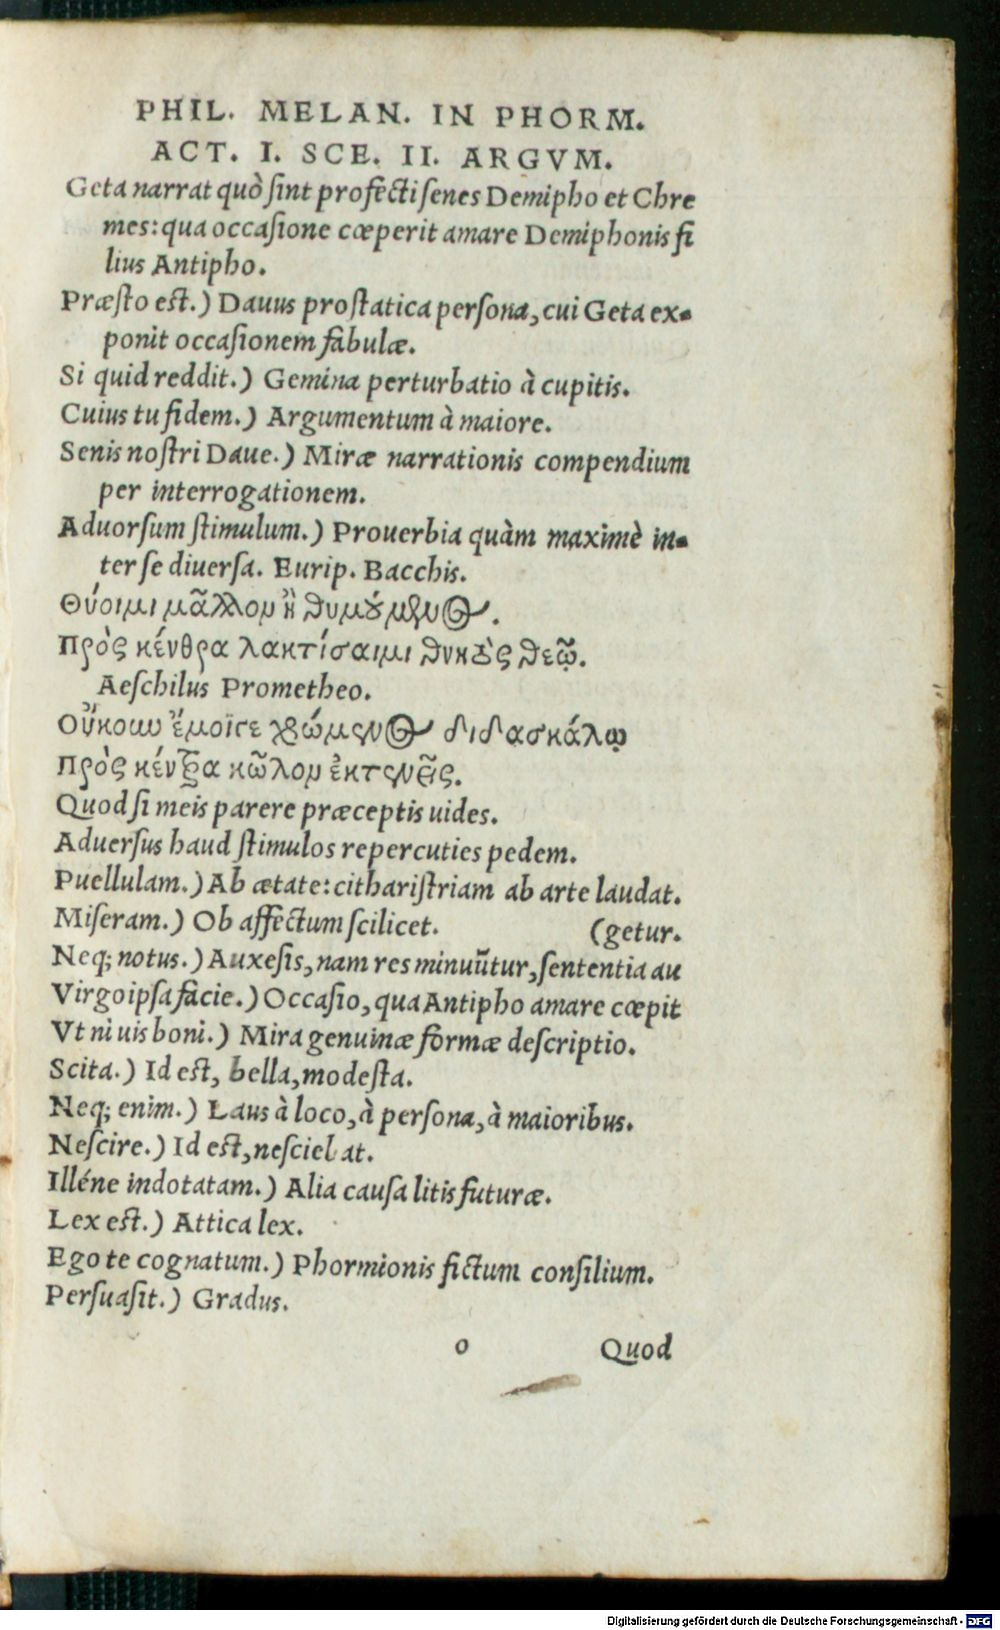 PHIL. MELAN. IN PHORM.
ACT. I. SCE. II. ARGVM.
Geta narrat quò ſint profecti ſenes Demipho et Chre
mes: qua occaſione cœperit amare Demiphonis fi
lius Antipho.
Præſto eſt.) Dauus proſtatica perſona, cui Geta ex-
ponit occaſionem fabulæ.
Si quid reddit.) Gemina perturbatio à cupitis.
Cuius tu fidem.) Argumentum à maiore.
Senis noſtri Daue.) Miræ narrationis compendium
per interrogationem.
Aduorſum ſtimulum.) Prouerbia quàm maximè in-
ter ſe diuerſa. Eurip. Bacchis.
Θύοιμι μᾶλλον ἢ θυμούμενος.
Πρὸς κένθρα λακτίσαιμι θνητὸς θεῷ.
Aeſchilus Prometheo.
Οὔκουν ἔμοιγε χρώμενος διδασκάλῳ
Πρὸς κένξα κῶλον ἐκτενεῖς.
Quod ſi meis parere præceptis uides.
Aduerſus haud ſtimulos repercuties pedem.
Puellulam.) Ab ætate: cithariſtriam ab arte laudat.
Miſeram.) Ob affectum ſcilicet. (getur.
Neq; notus.) Auxeſis, nam res minuūtur, ſententia au
Virgo ipſa facie.) Occaſio, qua Antipho amare cœpit
Vt ni uis boni.) Mira genuinæ formæ deſcriptio.
Scita.) Id eſt, bella, modeſta.
Neq; enim.) Laus à loco, à perſona, à maioribus.
Neſcire.) Id eſt, neſciebat.
Illéne indotatam.) Alia cauſa litis futuræ.
Lex eſt.) Attica lex.
Ego te cognatum.) Phormionis fictum conſilium.
Perſuaſit.) Gradus.
o Quod
Digitalisierung gefördert durch die Deutsche Forschungsgemeinschaft - DFG